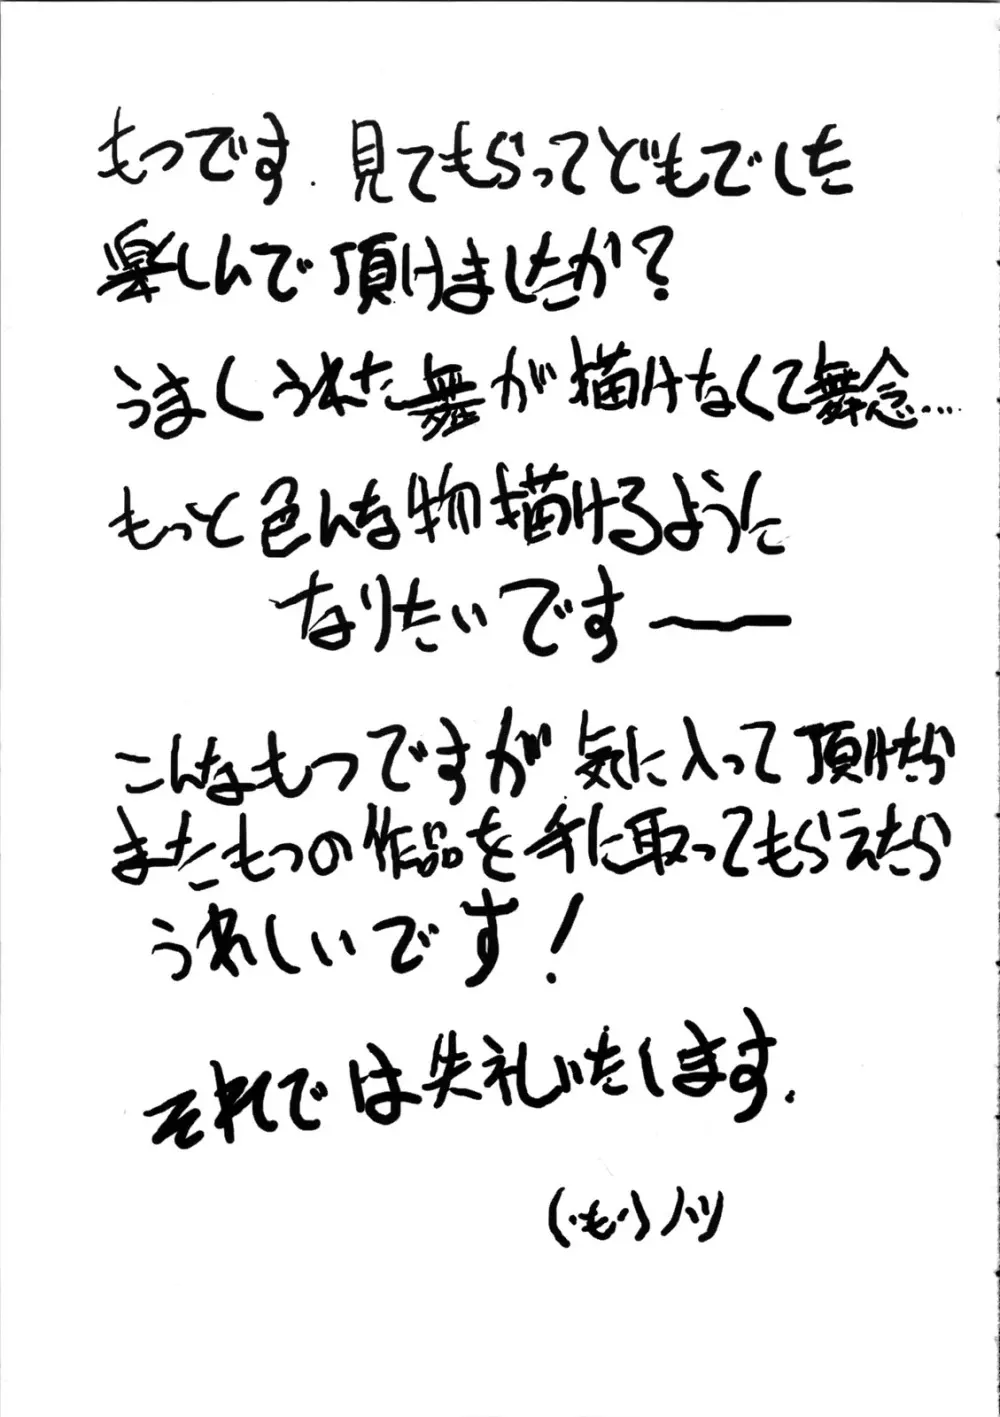 もつです．見てもらってどもでした
楽しんで頂けましたか？
うまくうれた舞が描けなくて無念…
もっと色んな物描けるように
なりたいですー
こんなもつですが気に入って頂けたら
またもつの作品を手に取ってもらえたら
うれしいです！
それでは失礼いたします．
(・も・)ノシ